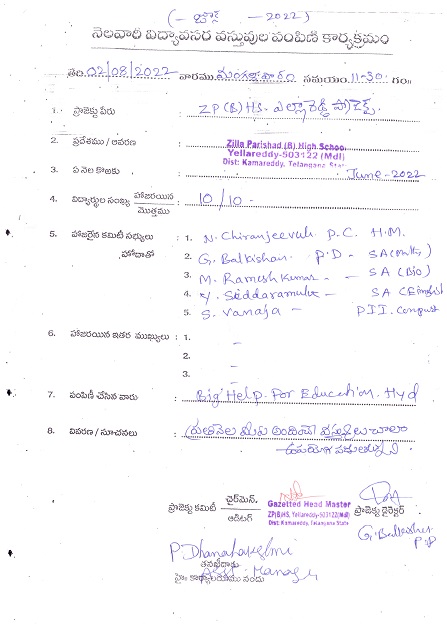 (- జూన్ - 2022)
నెలవారి విద్యావసర వస్తువుల పంపిణి కార్యక్రమం
తేది. 02/08/2022 వారము. మంగళవారం సమయం. 11-30 గం॥
1. ప్రాజెక్టు పేరు : ZP(B)HS. ఎల్లారెడ్డి ప్రాజెక్ట్.
2. ప్రదేశము / ఆవరణ : Zilla Parishad (B) High School
Yellareddy-503122 (Mdl)
Dist: Kamareddy, Telangana State
3. ఏ నెల కొఱకు : June-2022
4. విద్యార్థుల సంఖ్య హాజరయిన / మొత్తము : 10/10
5. హాజరైన కమిటీ సభ్యులు : 1. N. Chiranjeevulu P.C. H.M.
హోదాతో 2. G. Balkishan P.D - SA (Maths)
3. M. Ramesh Kumar - SA (Bio)
4. Y. Siddaramulu - SA (English)
5. S. Vanaja -
6. హాజరయిన ఇతర ముఖ్యులు : 1. -
2.
3. -
7. పంపిణీ చేసిన వారు : Big Help For Education. Hyd
8. వివరణ / సూచనలు : ప్రతినెల మీరు అందించే వస్తువులు చాలా
ఉపయోగ పడుతున్నవి
ప్రాజెక్టు కమిటీ ఛైర్మెన్. Gazetted Head Master ప్రాజెక్టు డైరెక్టర్
ఆడిటర్ ZP(B)HS, Yellareddy-503122(Mdl)
Dist: Kamareddy, Telangana State
G. Balkishan
P.D
P. Dhanalakshmi
తనిఖీదారు
Asst. Manager
హై. కార్యాలయము నందు